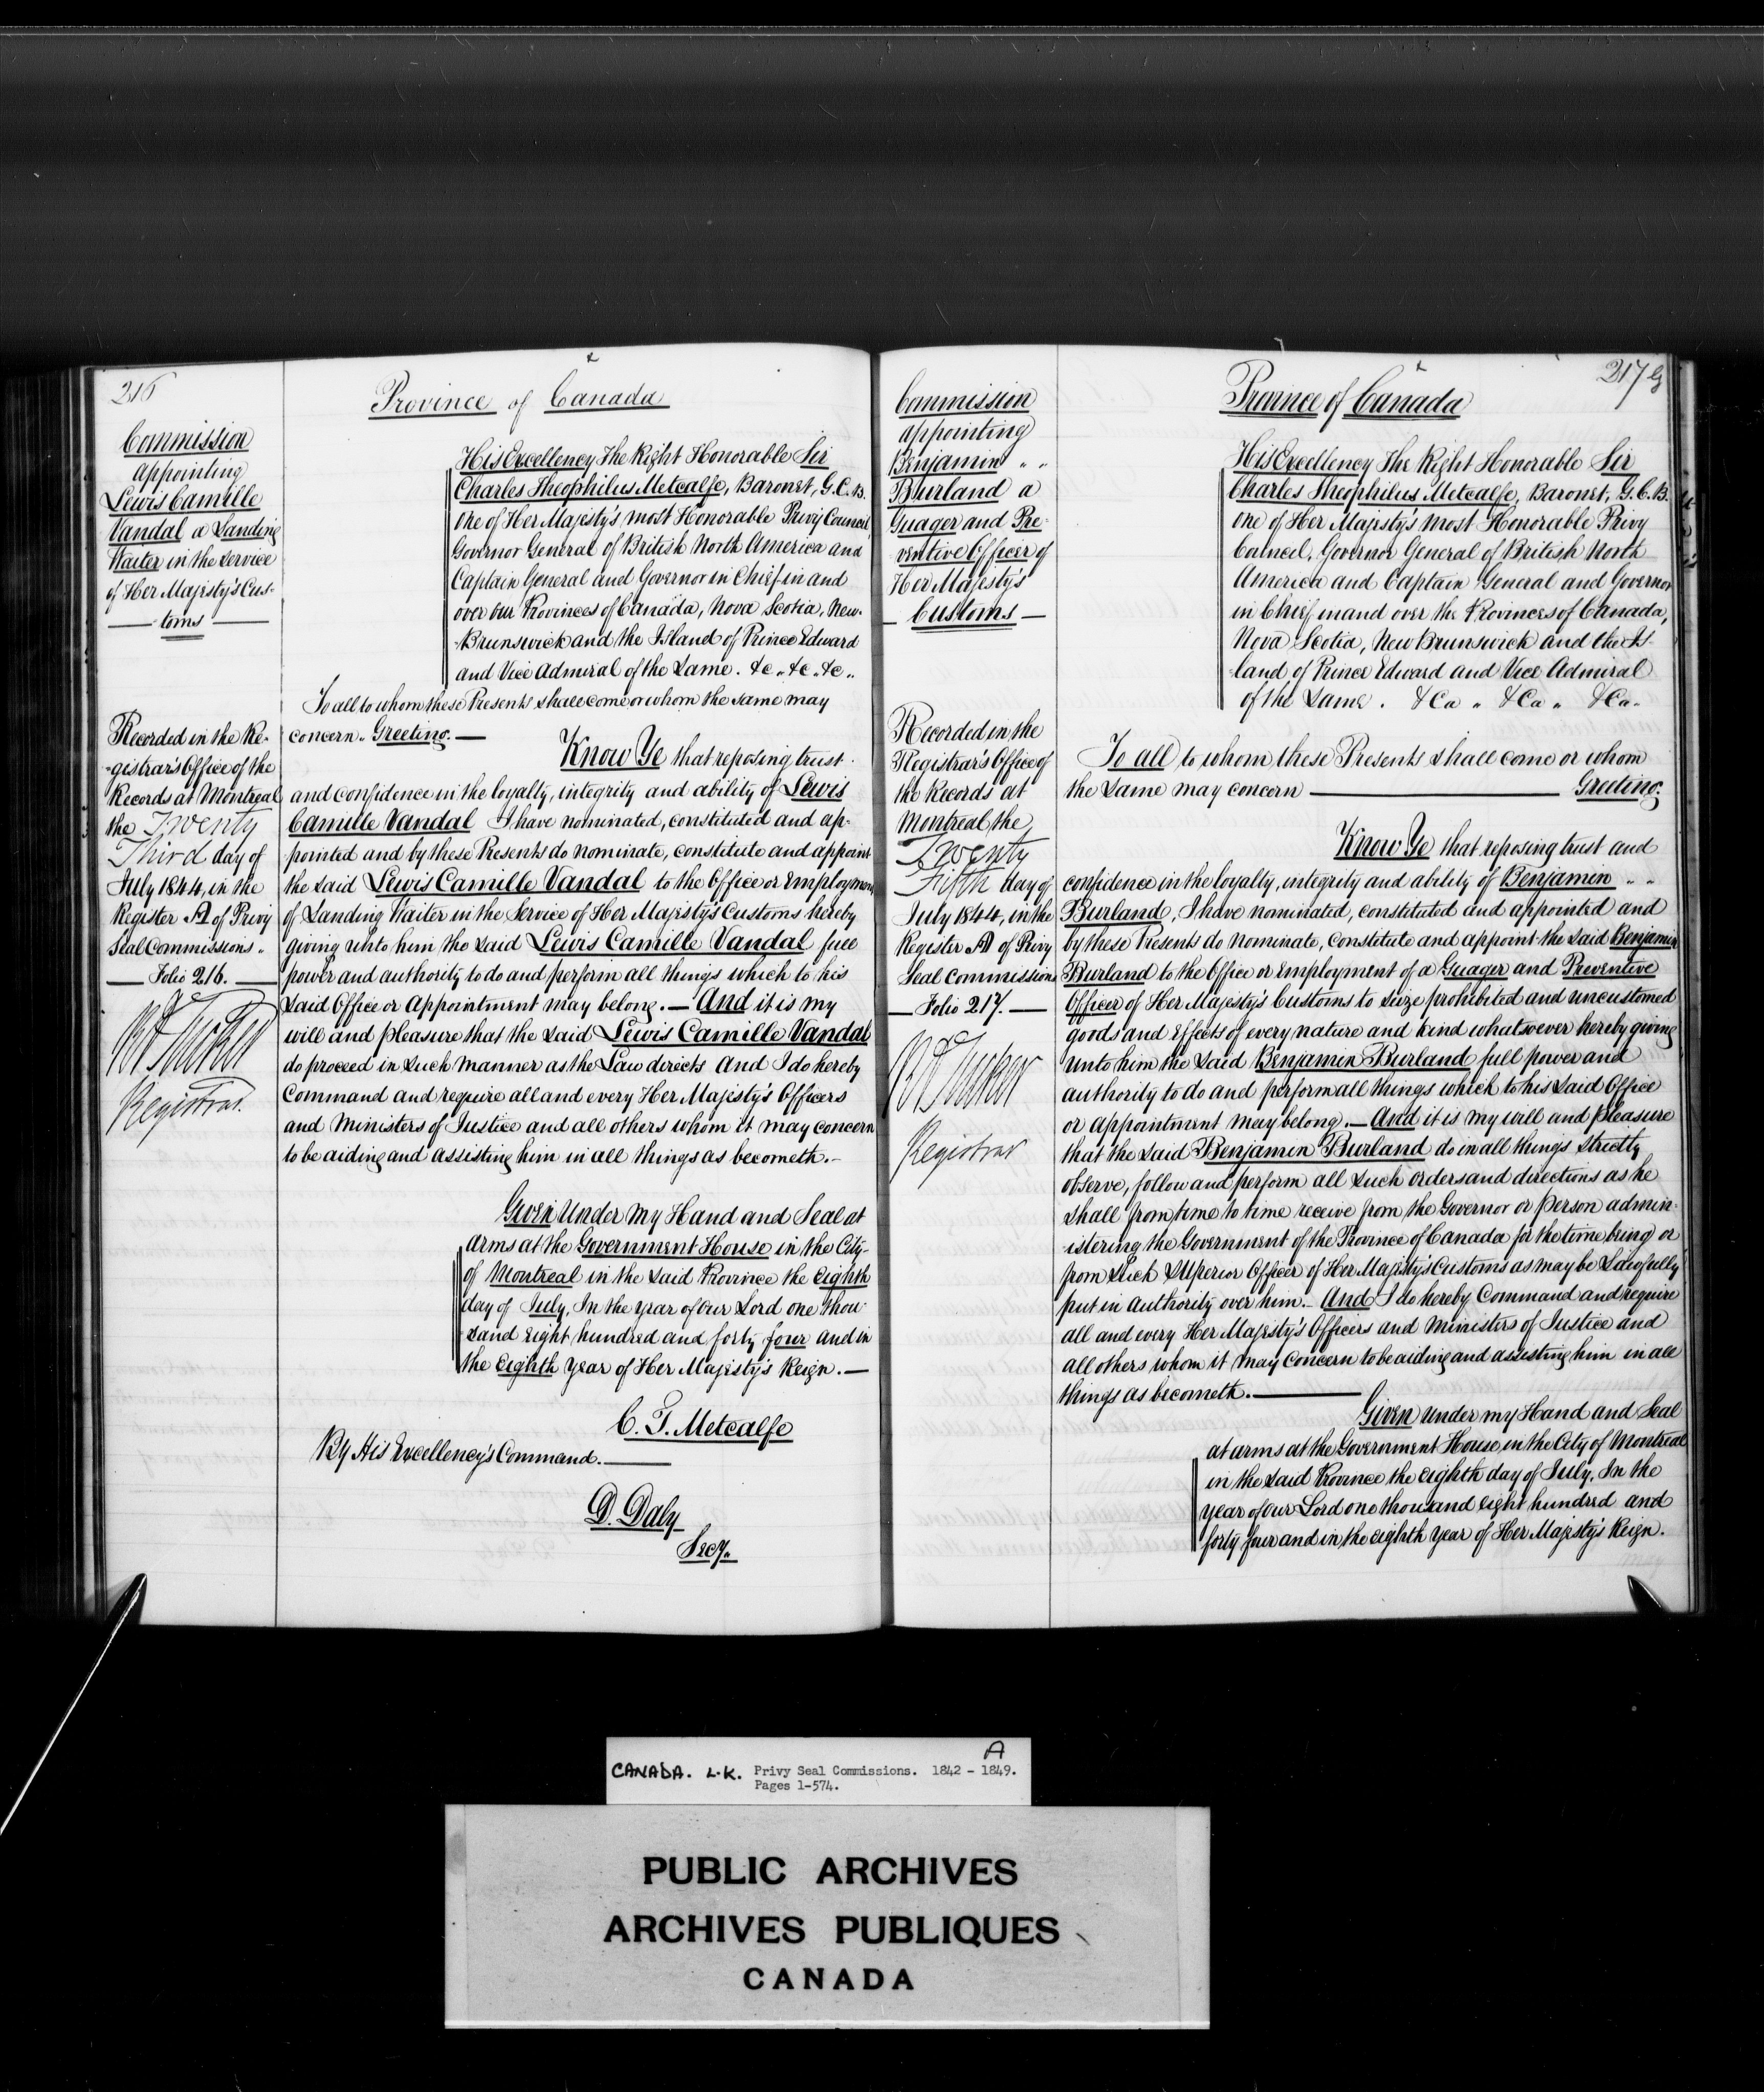 216
Province of Canada
Commission
appointing
Lewis Camille
Vandal a Landing
Waiter in the service
of Her Majesty's Cus-
toms
His Excellency The Right Honorable Sir
Charles Theophilus Metcalfe, Baronet, G.C.B.
one of Her Majesty's most Honorable Privy Council
Governor General of British North America and
Captain General and Governor in Chief in and
over our Provinces of Canada, Nova Scotia, New-
Brunswick and the Island of Prince Edward
and Vice Admiral of the Same. &c. &c. &c.
To all to whom these Presents shall come or whom the same may
concern. Greeting. —
Know Ye that reposing trust
and confidence in the loyalty, integrity and ability of Lewis
Camille Vandal I have nominated, constituted and ap-
pointed and by these Presents do nominate, constitute and appoint
the said Lewis Camille Vandal to the Office or Employment
of Landing Waiter in the Service of Her Majesty's Customs hereby
giving unto him the said Lewis Camille Vandal full
power and authority to do and perform all things which to his
said Office or Appointment may belong. — And it is my
will and pleasure that the said Lewis Camille Vandal
do proceed in such manner as the Law directs And I do hereby
Command and require all and every Her Majesty's Officers
and Ministers of Justice and all others whom it may concern
to be aiding and assisting him in all things as becometh. —
Recorded in the Re-
-gistrar's Office of the
Records at Montreal
the Twenty
Third day of
July 1844, in the
Register A of Privy
Seal Commissions
Folio 216.
R A Tucker
Registrar.
Given Under my Hand and Seal at
Arms at the Government House in the City
of Montreal in the said Province the Eighth
day of July, In the year of Our Lord one thou-
sand eight hundred and forty four and in
the Eighth year of Her Majesty's Reign. —
C. T. Metcalfe
By His Excellency's Command. —
D. Daly
Secy.
217
Province of Canada
Commission
appointing
Benjamin " "
Burland a
Guager and Pre-
ventive Officer of
Her Majesty's
Customs —
His Excellency The Right Honorable Sir
Charles Theophilus Metcalfe, Baronet, G.C.B.
one of Her Majesty's most Honorable Privy
Council, Governor General of British North
America and Captain General and Governor
in Chief in and over the Provinces of Canada,
Nova Scotia, New Brunswick and the Is-
-land of Prince Edward and Vice Admiral
of the Same. &Ca " &Ca " &Ca.
To all to whom these Presents shall come or whom
the same may concern — Greeting.
Know Ye that reposing trust and
confidence in the loyalty, integrity and ability of Benjamin " "
Burland, I have nominated, constituted and appointed and
by these Presents do nominate, constitute and appoint the said Benjamin
Burland to the Office or Employment of a Guager and Preventive
Officer of Her Majesty's Customs to Seize prohibited and uncustomed
goods and Effects of every nature and kind whatsoever hereby giving
unto him the said Benjamin Burland full power and
authority to do and perform all things which to his said Office
or appointment may belong. — And it is my will and pleasure
that the said Benjamin Burland do in all things strictly
observe, follow and perform all such orders and directions as he
shall from time to time receive from the Governor or Person admin-
-istering the Government of the Province of Canada for the time being or
from such Superior Officer of Her Majesty's Customs as may be Lawfully
put in Authority over him. — And I do hereby Command and require
all and every Her Majesty's Officers and Ministers of Justice and
all others whom it may Concern to be aiding and assisting him in all
things as becometh. —
Recorded in the
Registrar's Office of
the Records at
Montreal the
Twenty
Fifth day of
July 1844, in the
Register A of Privy
Seal Commissions
Folio 217. —
R A Tucker
Registrar
Given under my Hand and Seal
at arms at the Government House in the City of Montreal
in the said Province the eighth day of July. In the
year of our Lord one thousand eight hundred and
forty four and in the eighth year of Her Majesty's Reign.
CANADA. L.K. Privy Seal Commissions. A 1842 - 1849.
Pages 1-574.
PUBLIC ARCHIVES
ARCHIVES PUBLIQUES
CANADA